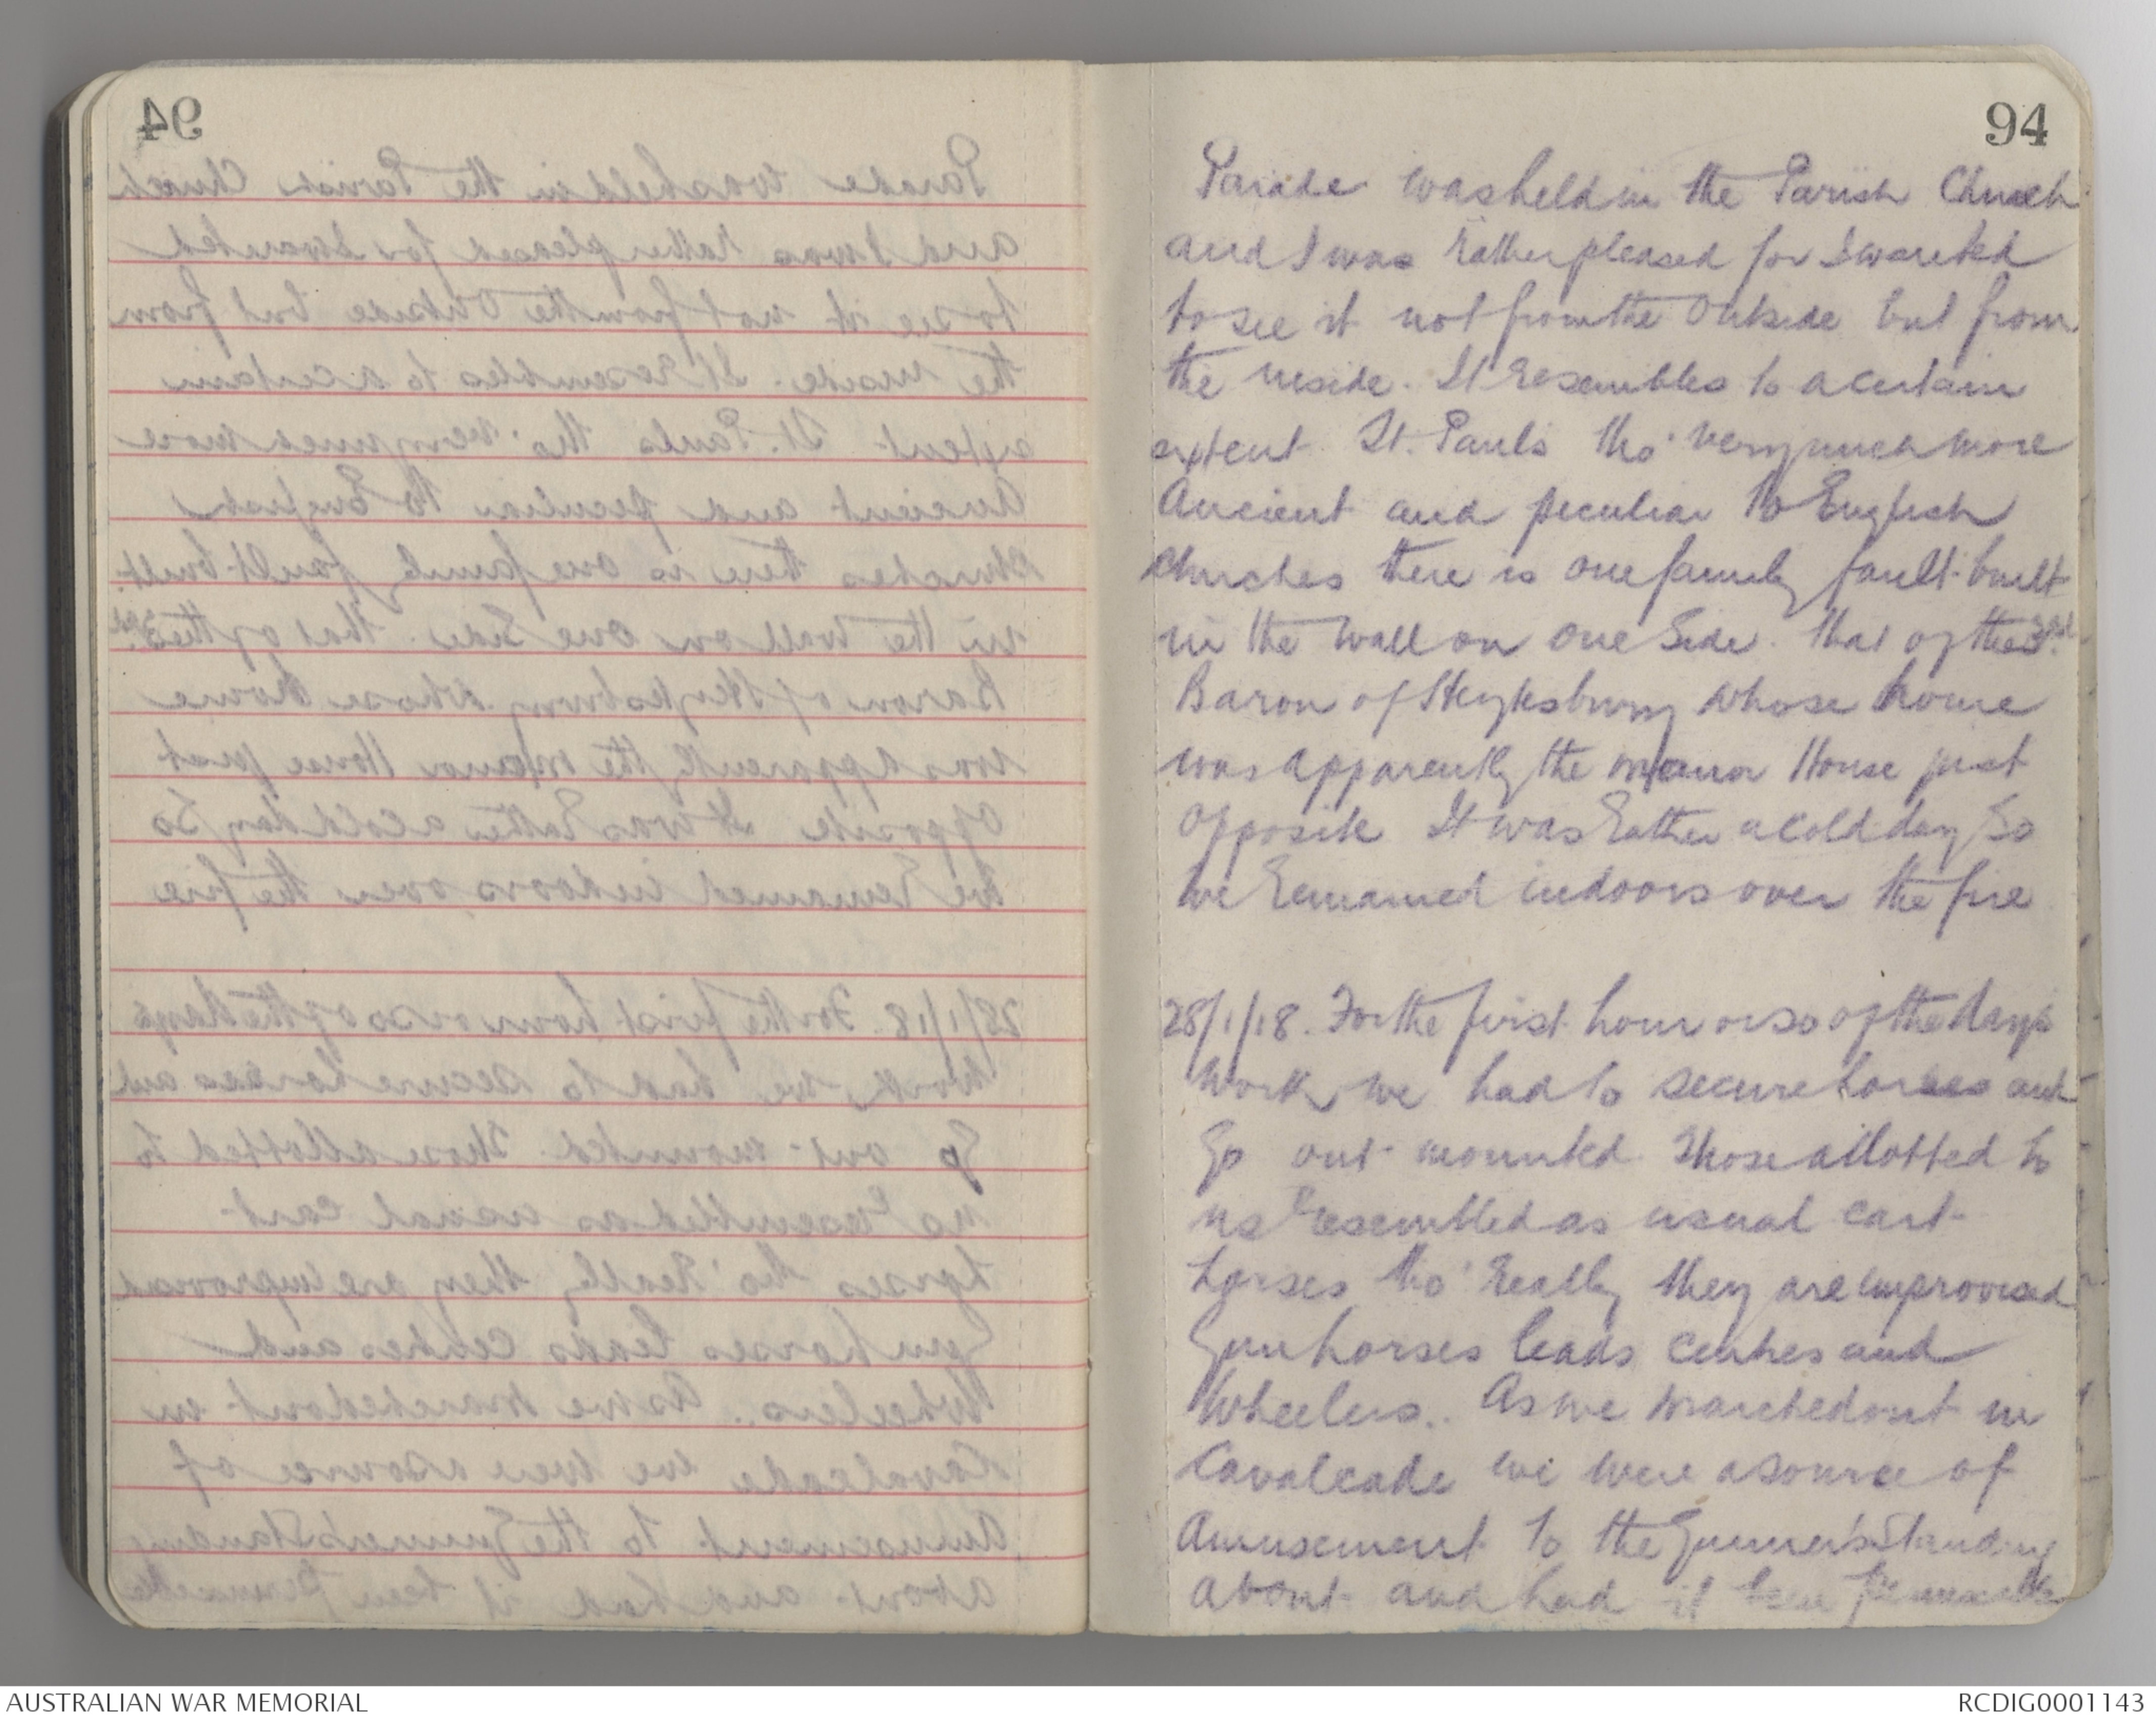 94
Parade was held in the Parish Church
and I was rather pleased for I wanted
to see it not from the Outside but from
the inside. It resembles to a certain
extent St. Pauls tho' very much more
Ancient and peculiar to English
Churches there is one family fault built
in the wall on one Side. That of the 3rd
Baron of Heytesbury whose home
was apparently the manor House just
opposite It was rather a cold day So
we remained indoors over the fire
28/1/18. For the first hour or so of the days
work we had to secure horses and
Go out mounted. Those allotted to
us resembled as usual cart-
horses tho' really they are improvised
Gun horses leads centres and
Wheelers.. As we marched out in
Cavalcade we were a source of
Amusement to the Gunners Standing
about and had it been
AUSTRALIAN WAR MEMORIAL
RCDIG0001143